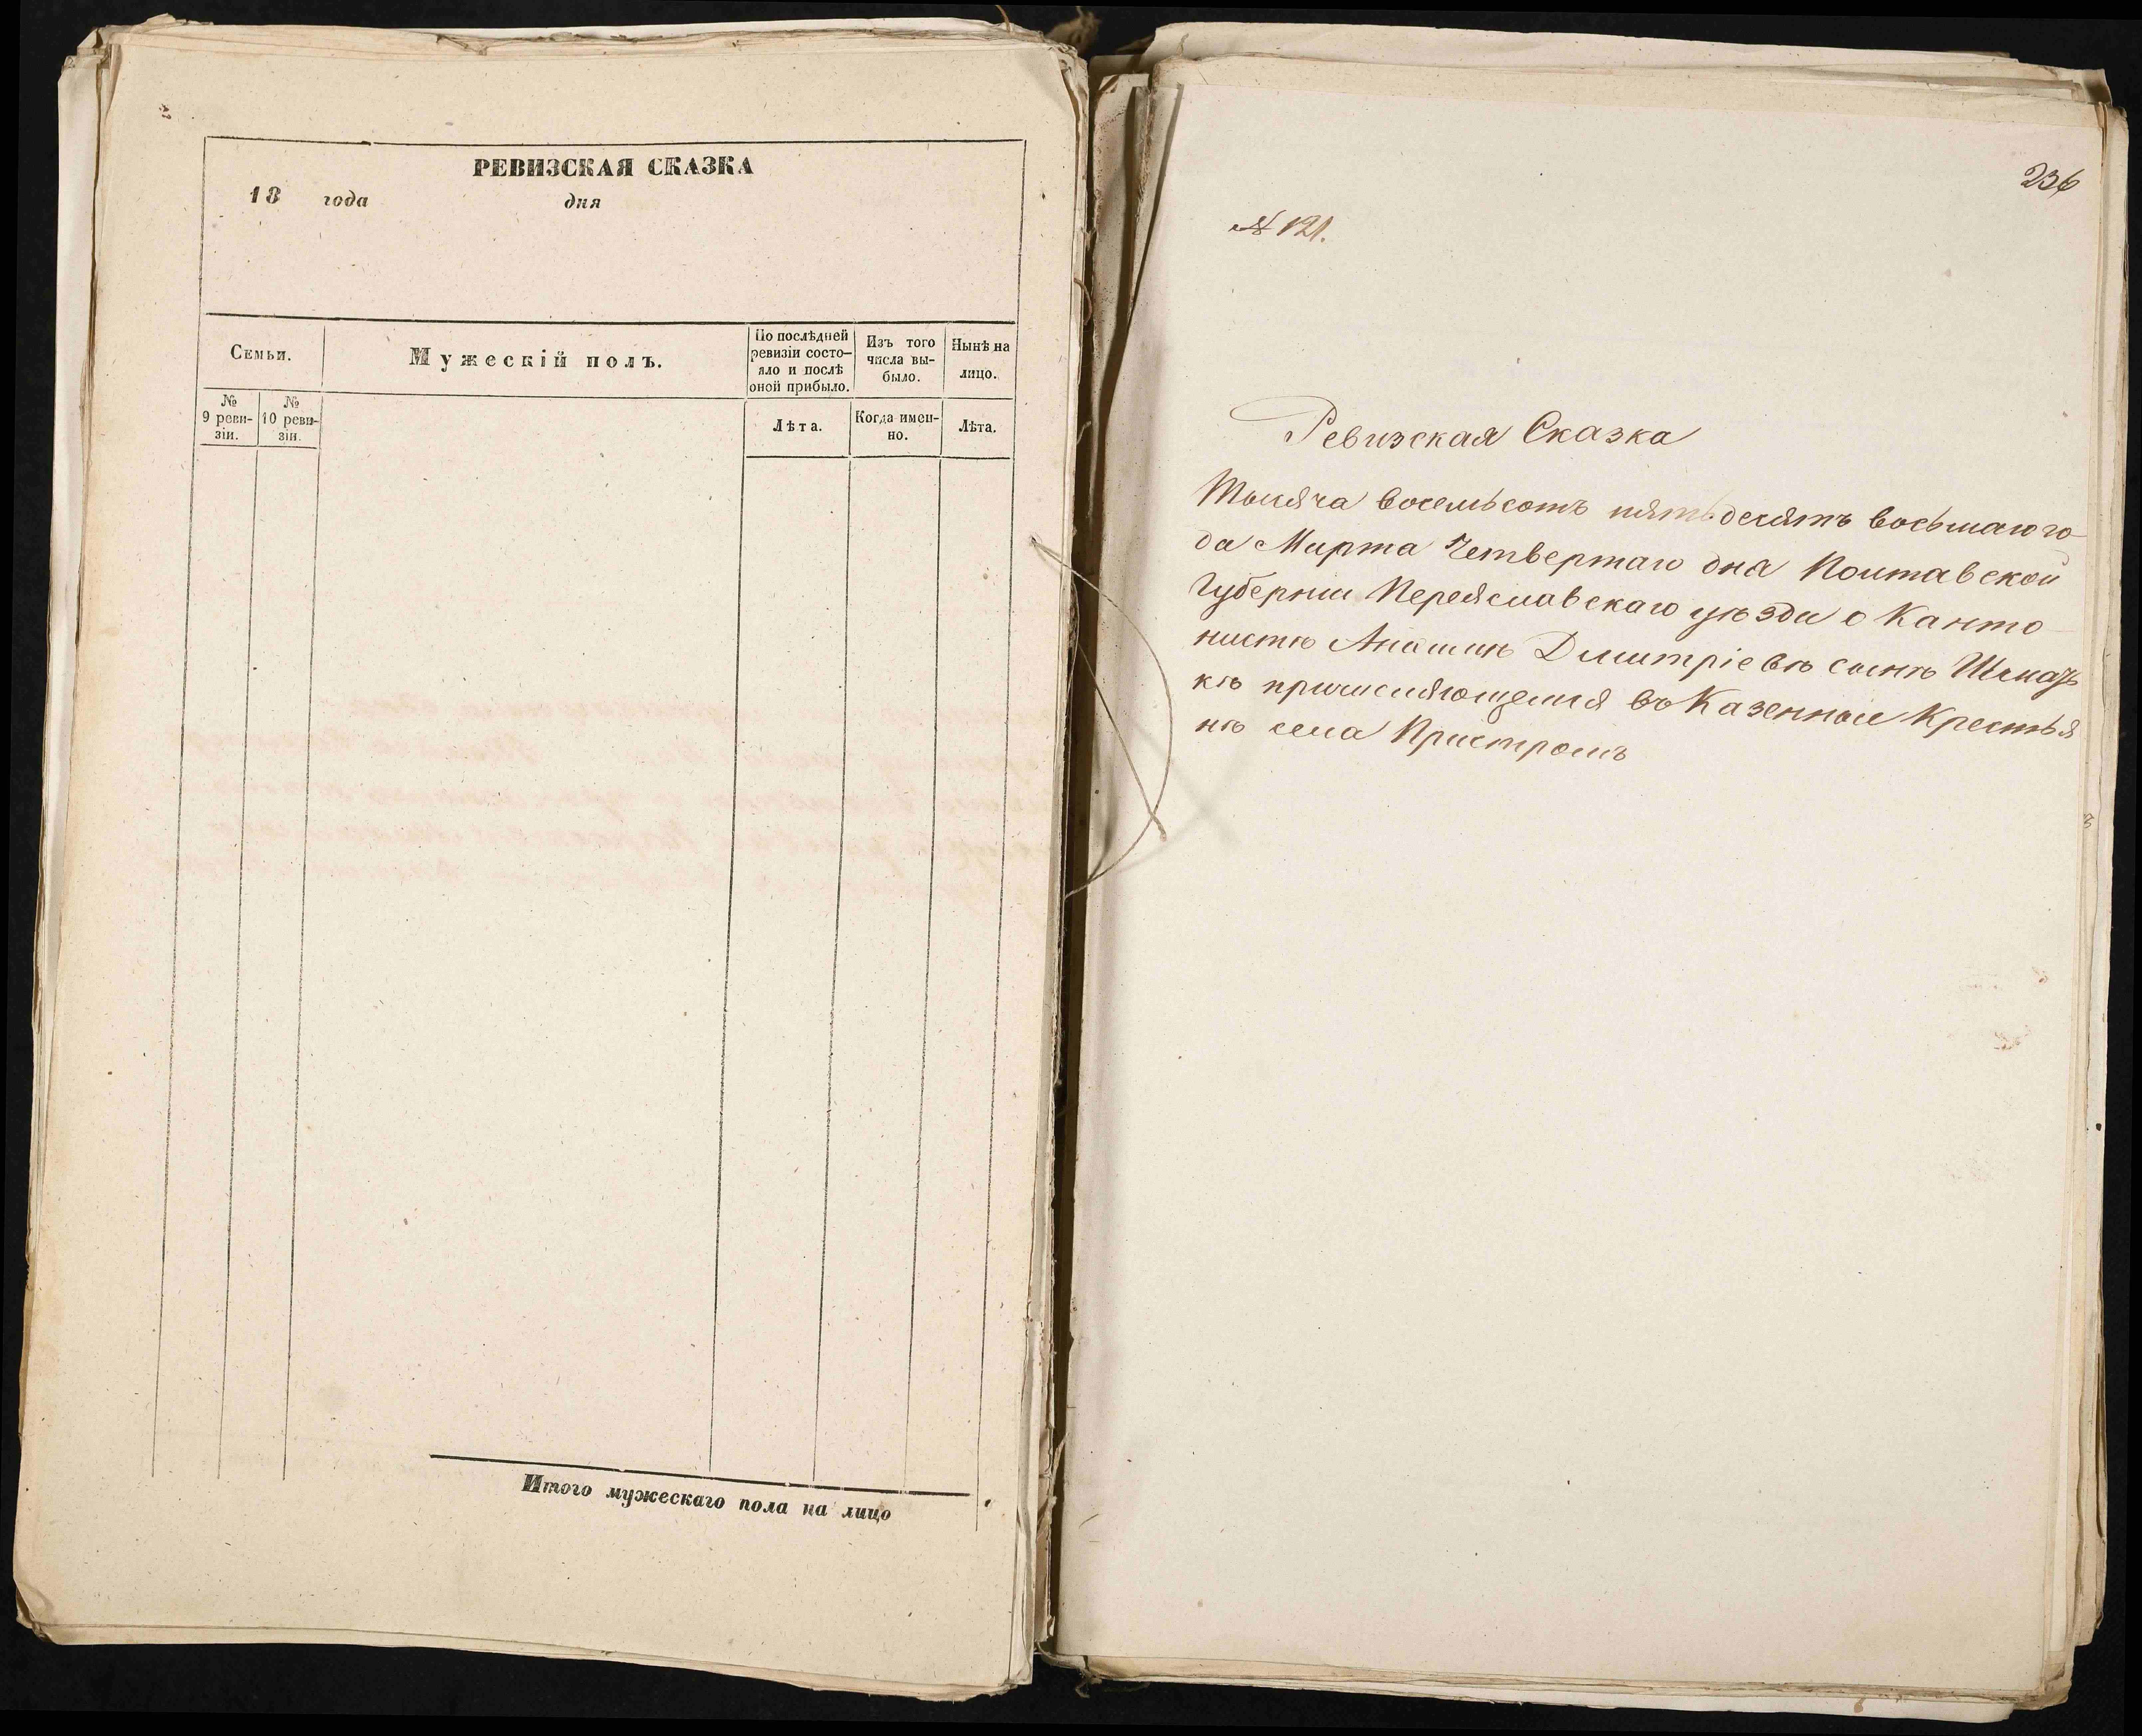 РЕВИЗСКАЯ СКАЗКА
18 года дня
Семьи.
Мужескій полъ.
По послѣдней
ревизіи состо-
яло и послѣ
оной прибыло.
Изъ того
числа вы-
было.
Нынѣ на
лицо.
№
9 реви-
зіи.
№
10 реви-
зіи.
Лѣта.
Когда имен-
но.
Лѣта.
Итого мужескаго пола на лицо
236
№ 121.
Ревизская Сказка
Тысяча восемьсотъ пятьдесятъ восьмаго го
да Марта Четвертаго дня Полтавской
Губерніи Переяславскаго уѣзда о Канто
нистѣ Дмитріевѣ сынѣ
кѣ причисляющемся въ Казенные Крестья
нѣ села Пристромъ